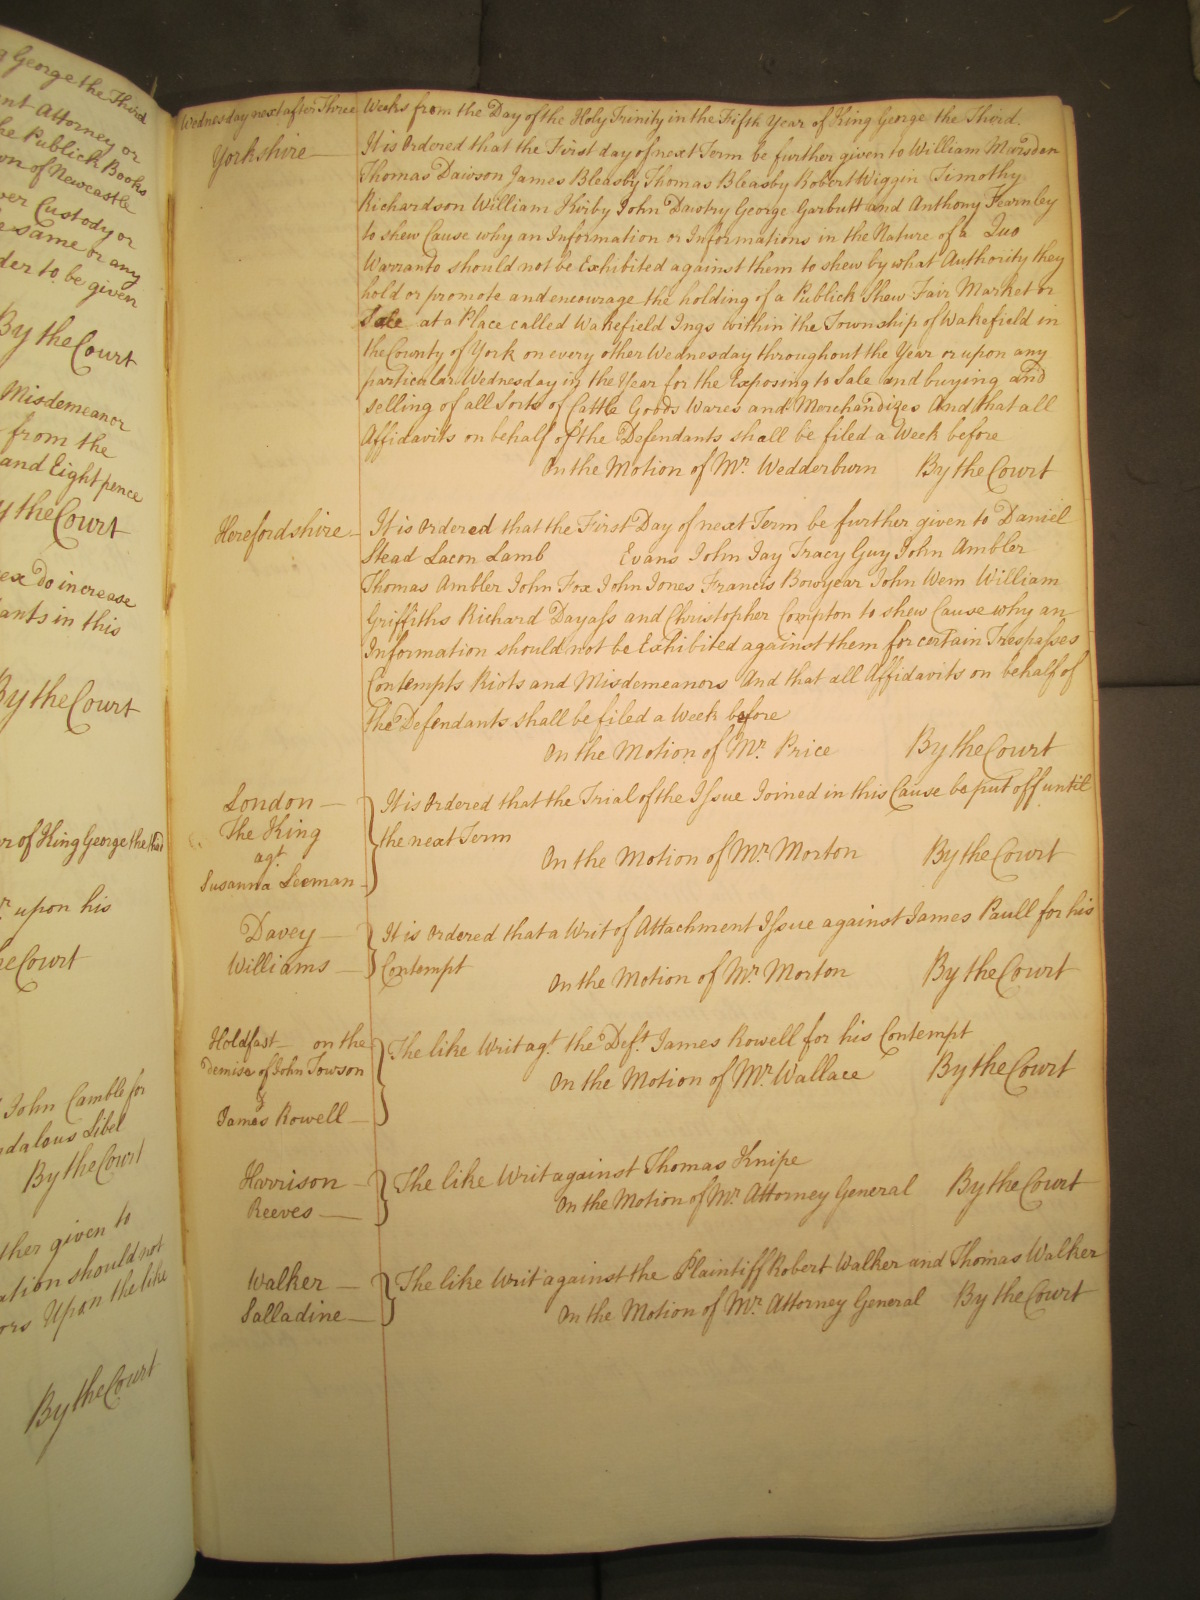 g George the Third
nt Attorney or
he Publick Books
wn of Newcastle
er Custody or
e same or any
der to be given
By the Court
Misdemeanor
from the
and Eight pence
y the Court
ex Do increase
ants in this
By the Court
r of King George the Third
upon his
e Court
John Camble for
dalous Libel
By the Court
ther given to
ation should not
ors Upon the like
By the Court
Wednesday next after Three Weeks from the Day of the Holy Trinity in the Fifth Year of King George the Third.
Yorkshire It is Ordered that the First day of next Term be further given to William Marsden
Thomas Dawson James Bleasby Thomas Bleasby Robert Wiggin Timothy
Richardson William Kirby John Dawtry George Garbutt and Anthony Fearnley
to shew Cause why an Information or Informations in the Nature of a Quo
Warranto should not be Exhibited against them to shew by what Authority they
hold or promote and encourage the holding of a Publick Shew Fair Market or
Sale at a Place called Wakefield Ings within the Township of Wakefield in
the County of York on every other Wednesday throughout the Year or upon any
particular Wednesday in the Year for the Exposing to Sale and buying and
selling of all Sorts of Cattle Goods Wares and Merchandizes And that all
Affidavits on behalf of the Defendants shall be filed a Week before
On the Motion of Mr. Wedderburn By the Court
Herefordshire It is Ordered that the First Day of next Term be further given to Daniel
Stead Lacon Lamb Evans John Jay Tracy Guy John Ambler
Thomas Ambler John Fox John Jones Francis Bowyear John Wem William
Griffiths Richard Dayass and Christopher Compton to shew Cause why an
Information should not be Exhibited against them for certain Trespasses
Contempts Riots and Misdemeanors And that all Affidavits on behalf of
the Defendants shall be filed a Week before
On the Motion of Mr. Price By the Court
London It is Ordered that the Trial of the Issue Joined in this Cause be put off until
The King the next Term
agt. On the Motion of Mr. Morton By the Court
Susanna Leeman
Davey It is Ordered that a Writ of Attachment Issue against James Paull for his
Williams Contempt
On the Motion of Mr. Morton By the Court
Holdfast on the The like Writ agt. the Deft. James Rowell for his Contempt
Demise of John Towson On the Motion of Mr. Wallace By the Court
&
James Rowell
Harrison The like Writ against Thomas Knipe
Reeves On the Motion of Mr. Attorney General By the Court
Walker The like Writ against the Plaintiff Robert Walker and Thomas Walker
Salladine On the Motion of Mr. Attorney General By the Court